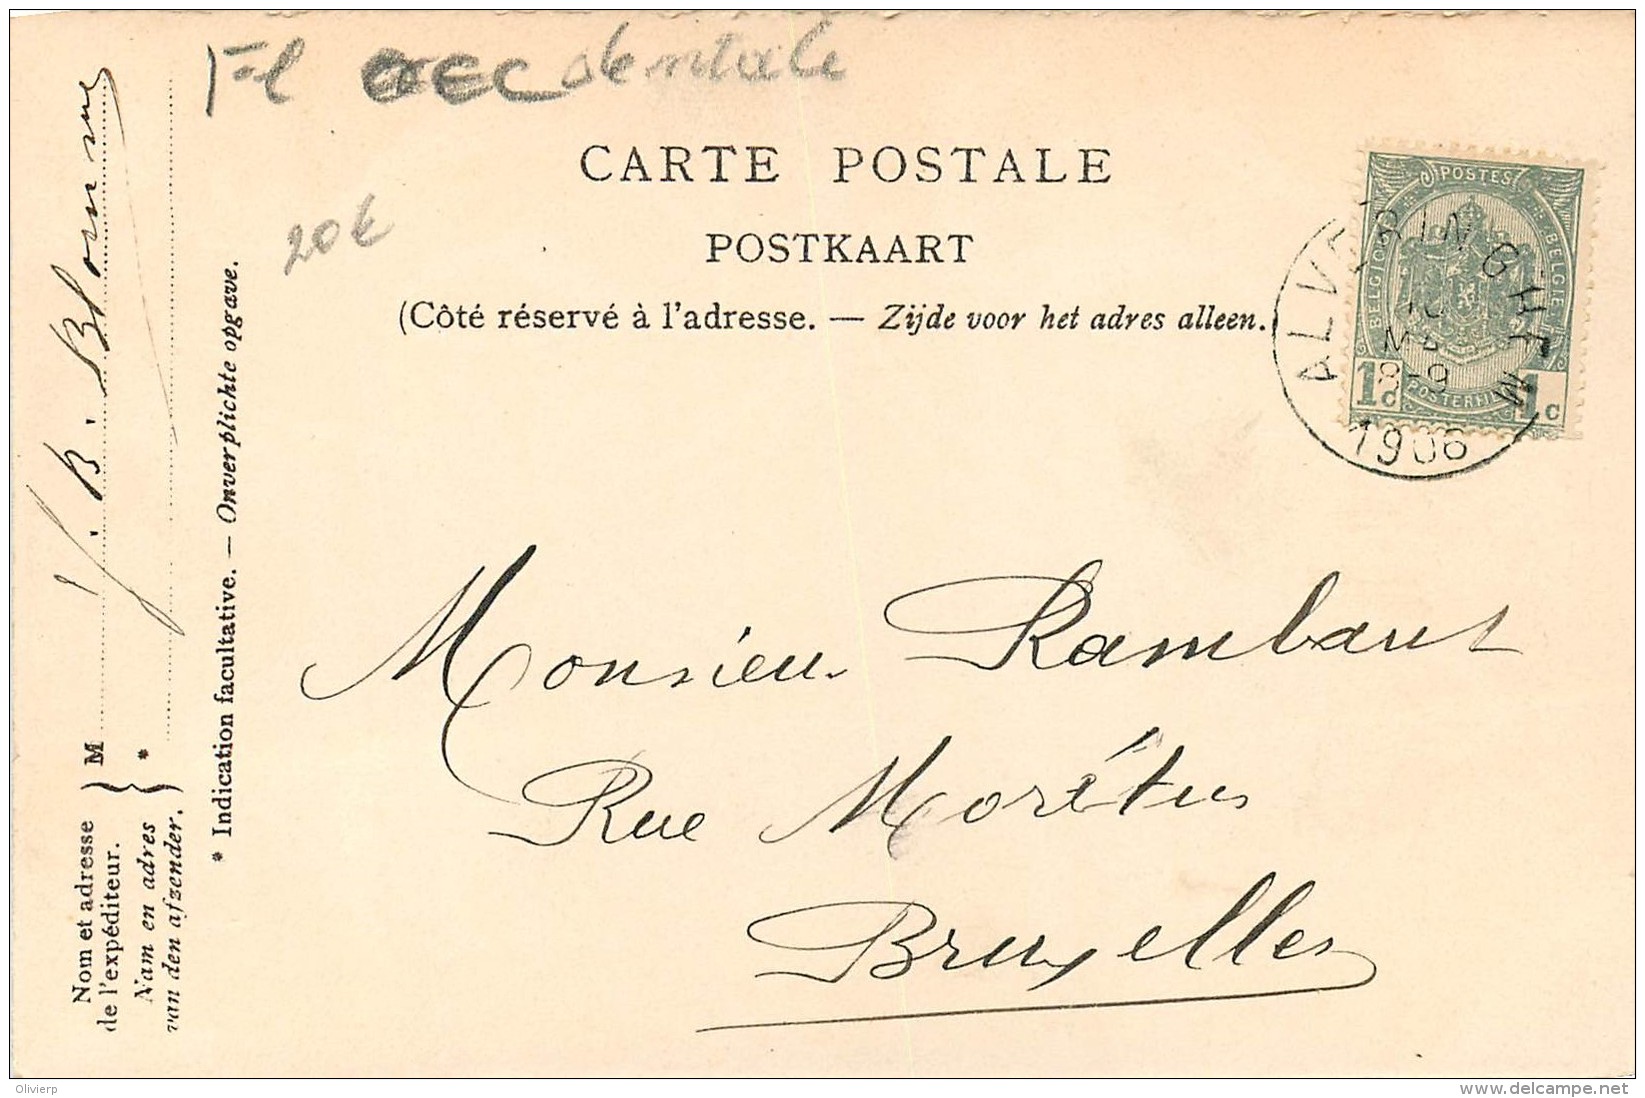 Fl occidentale
20€
CARTE POSTALE
POSTKAART
(Côté réservé à l'adresse. — Zijde voor het adres alleen.
POSTES
BELGIQUE
BELGIË
POSTERIJEN
1c
1c
ALVERINGHEM
8-9
1906
Monsieur Rambaut
Rue Morétus
Bruxelles
Nom et adresse
de l'expéditeur.
Nam en adres
van den afzender.
M
*
J. B. Blomme
* Indication facultative. — Onverplichte opgave.
Olivierp
www.delcampe.net